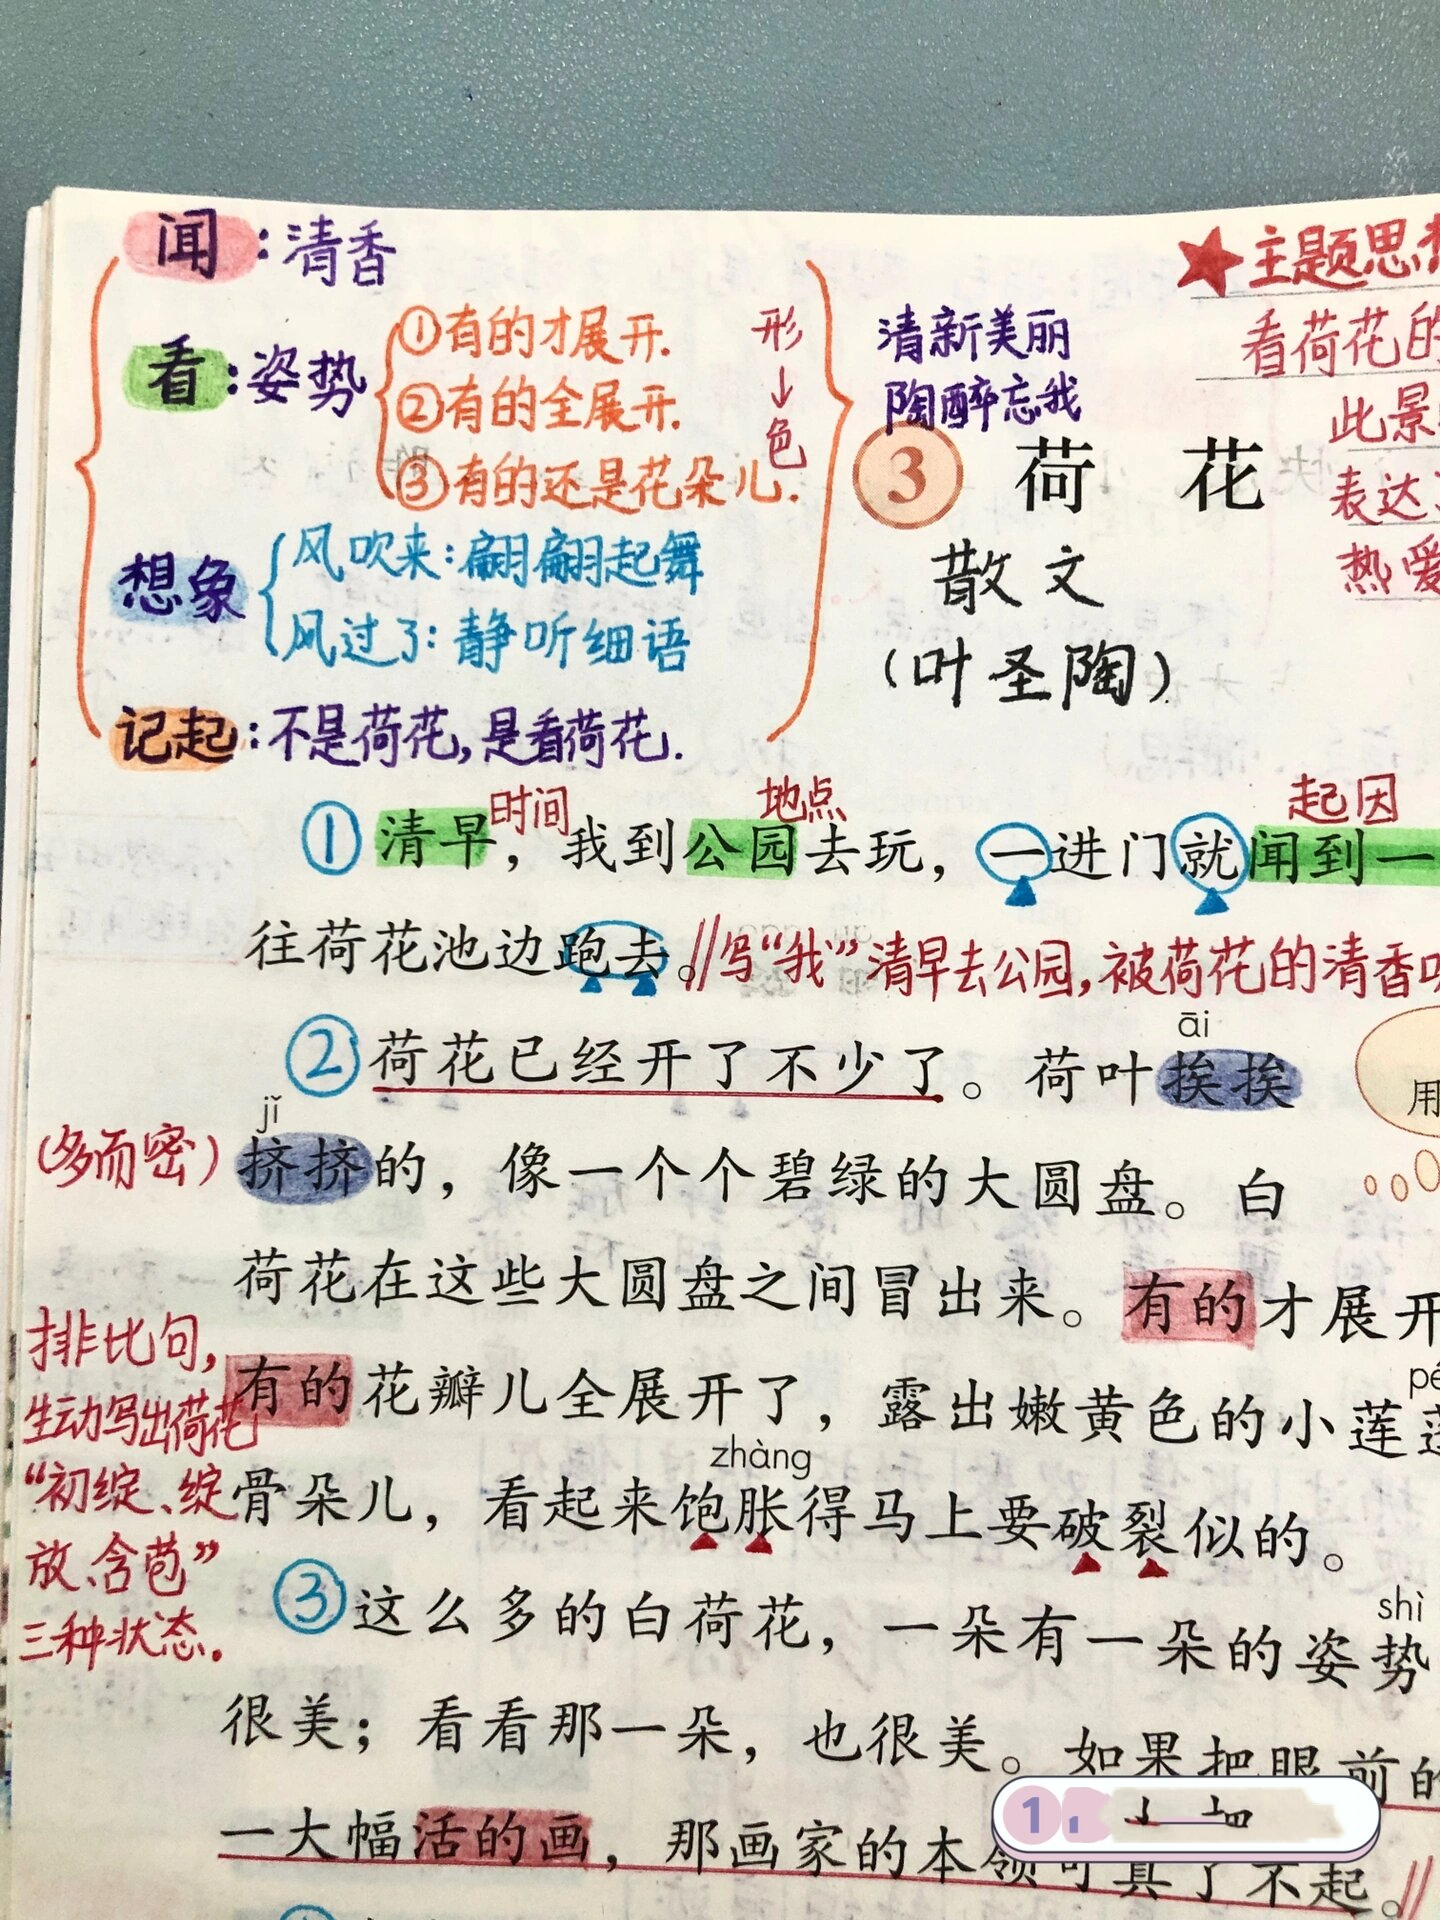 闻：清香
看：姿势
①有的才展开.
②有的全展开.
③有的还是花朵儿.
形↓色
想象
风吹来：翩翩起舞
风过了：静听细语
记起：不是荷花，是看荷花.
清新美丽
陶醉忘我
★主题思
看荷花的
此景
表达
热爱
3 荷 花
散文
（叶圣陶）
时间 地点 起因
①清早，我到公园去玩，一进门就闻到一
往荷花池边跑去。//写“我”清早去公园，被荷花的清香
āi
②荷花已经开了不少了。荷叶挨挨
用
jǐ
（多而密）
挤挤的，像一个个碧绿的大圆盘。白
荷花在这些大圆盘之间冒出来。有的才展开
排比句，
生动写出荷花
“初绽、绽
放、含苞”
三种状态.
有的花瓣儿全展开了，露出嫩黄色的小莲
zhàng
骨朵儿，看起来饱胀得马上要破裂似的。
shì
③这么多的白荷花，一朵有一朵的姿势
很美；看看那一朵，也很美。如果把眼前的
一大幅活的画，那画家的本领可真了不起。//